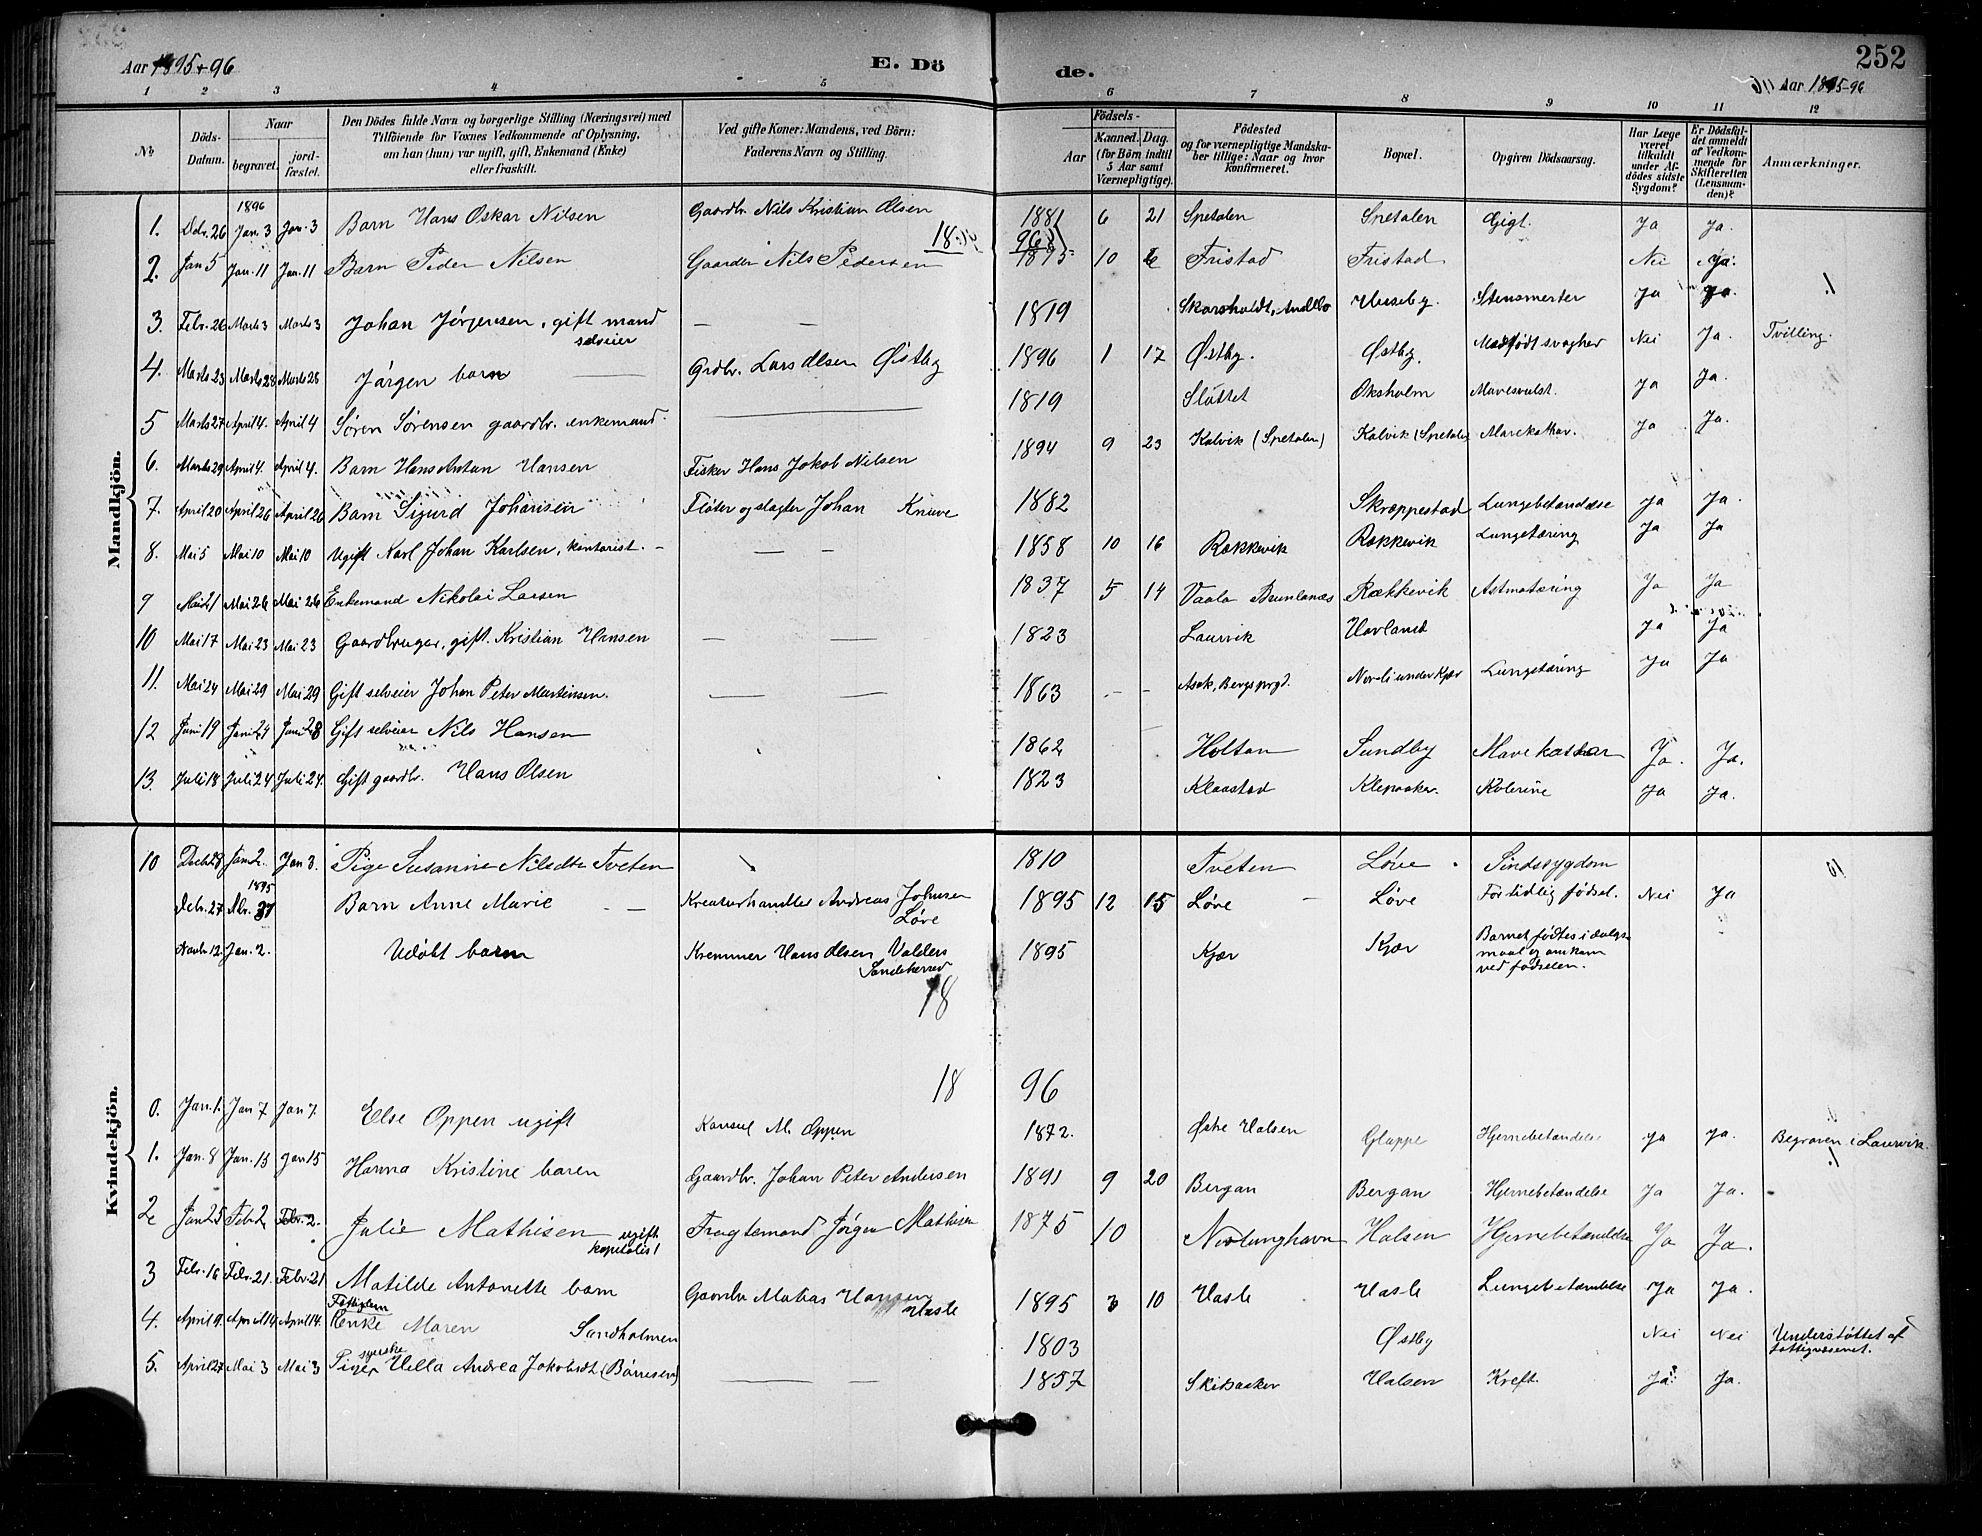 Aar 1895+96 E. Dö de. 252
Aar 1895-96
1 2 3 4 5 6 7 8 9 10 11 12
No
Döds-Datum.
Naar
begravet.
jord-fæstet.
Den Dödes fulde Navn og borgerlige Stilling (Næringsvei) med
Tilföiende for Voxnes Vedkommende af Oplysning,
om han (hun) var ugift, gift, Enkemand (Enke)
eller fraskilt.
Ved gifte Koner: Mandens, ved Börn:
Faderens Navn og Stilling.
Födsels-
Aar
Maaned. Dag.
(for Börn indtil
5 Aar samt
Værnepligtige).
Födested
og for værnepligtige Mandska-
ber tillige: Naar og hvor
konfirmeret.
Bopæl.
Opgiven Dödsaarsag.
Har Læge
været
tilkaldt
under Af-
dödes sidste
Sygdom?
Er Dödsfal-
det anmeldt
af Vedkom-
mende for
Skifteretten
(Lensman-
den)?
Anmærkninger.
Mandkjön.
1896
1. Dcbr. 26 Jan. 3 Jan. 3 Barn Hans Oskar Nilsen Gaardbr. Nils Kristian Olsen 1881 6 21 Spetalen Spetalen Gigt. Ja Ja.
2. Jan 5 Jan. 11 Jan. 11 Barn Peder Nilsen Gaardbr Nils Pedersen 1895 10 6 Fristad Fristad Nei Ja.
3. Febr. 26 Marts 3 Marts 3 Johan Jørgensen, gift mand selveier — — 1819 Huseby. Stensmerter Ja Ja.
4. Marts 23 Marts 28 Marts 28 Jørgen barn — Grdbr. Lars Olsen Østby 1896 1 17 Østby. Østby. Medfødt svaghed Nei Ja. Tvilling.
5 Marts 27 April 4. April 4 Søren Sørensen gaardbr. enkemand. — 1819 Slottet Oksholm Mavesvulst. Ja Ja.
6. Marts 29 April 4. April 4. Barn Hans Anton Hansen Fisker Hans Jokob Nilsen 1894 9 23 Kalvik (Spetalen) Kalvik (Spetalen Mavekathar. Ja Ja.
7. April 20 April 26 April 26 Barn Sigurd Johansen Fløter og slagter Johan Knuve 1882 Skræppestad Lungebetændelse Ja Ja.
8. Mai 5 Mai 10 Mai 10 Ugift Karl Johan Karlsen, kontorist. — — — 1858 10 16 Rækkevik Rækkevik Lungetæring Ja Ja
9 Mai 21 Mai 26 Mai 26 Enkemand Nikolai Larsen 1837 5 14 Vaala Brunlanæs Rækkevik Astmatæring Ja Ja
10 Mai 17 Mai 23 Mai 23 Gaardbruger, gift. Kristian Hansen — — 1823 Laurvik Hovland Ja Ja
11. Mai 24 Mai 29 Mai 29 Gift selveier Johan Peter Martinsen. — — 1863 - - Ask, Bergs prgd. Nordli under Kjær Lungetæring Ja Ja
12 Juni 19 Juni 24 Juni 28 Gift selveier Nils Hansen 1862 Holtan Sundby Mavekathar Ja. Ja.
13. Juli 18 Juli 24 Juli 24. Gift gaardbr. Hans Olsen 1823 Klaastad Klepaaker. Kolerine Ja Ja.
Kvindekjön.
10 Decbr 28 Jan 2. Jan 3. Pige Susanne Nilsdtr Tveten 1810 Tveten Løve Sindssygdom
1895
Dcbr. 27 Dbr. 31 Barn Anne Marie — Kreaturhandler Andreas Johnsen Løve 1895 12 15 Løve Løve For tidlig fødsel. Nei Ja
Novbr 12. Jan. 2. Udøbt barn Kremmer Hans Olsen Valders Sandeherred 1895 Kjær Kjær Barnet fødtes i dølgs-
maal og omkom
ved fødselen.
18
18 96
0. Jan. 1. Jan 7 Jan 7. Else Oppen ugift Konsul M. Oppen 1872. Østre Halsen Gloppe Hjernebetændelse Ja Ja. Begraven i Laurvik.
1. Jan. 8 Jan. 15 Jan 15 Hanna Kristine baren Gaardbr. Johan Peter Andersen 1891 9 20 Bergan Bergan Hjernebetændelse Ja Ja.
2 Jan 25 Febr 2 Febr. 2. Julie Mathisen ugift Fragtemand Jørgen Mathisen 1875 10 Nevlunghavn Halsen Hjernebetændelse Ja Ja.
3 Febr. 16 Febr. 21. Febr. 21 Matilde Antonette barn Gaardbr Matias Hansen Hasle 1895 3 10 Hasle Hasle Lungebetændelse Ja Ja.
4. April 9. April 14 April 14. Fattiglem Enke Maren Sandholmen 1803 Østby Nei Nei Understøttet af
fattigvæsenet.
5. April 27 Mai 3 Mai 3 Pige syerske Helle Andrea Jakobsdt (Børresen) — — 1857 Skisaaker Halsen Kreft. Ja. Ja.